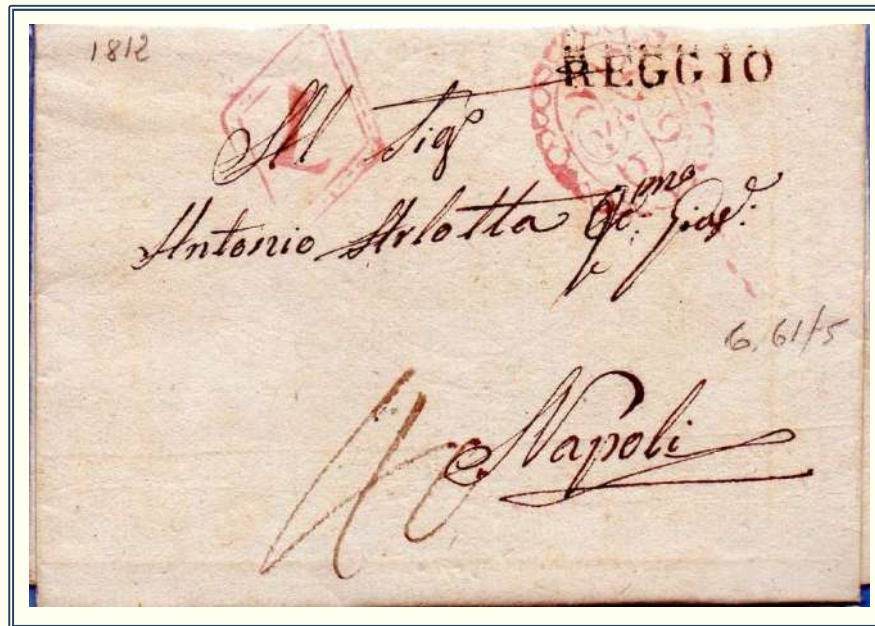 1812
REGGIO
Al Sig.
Antonio Arlotta
6.61/5
Napoli